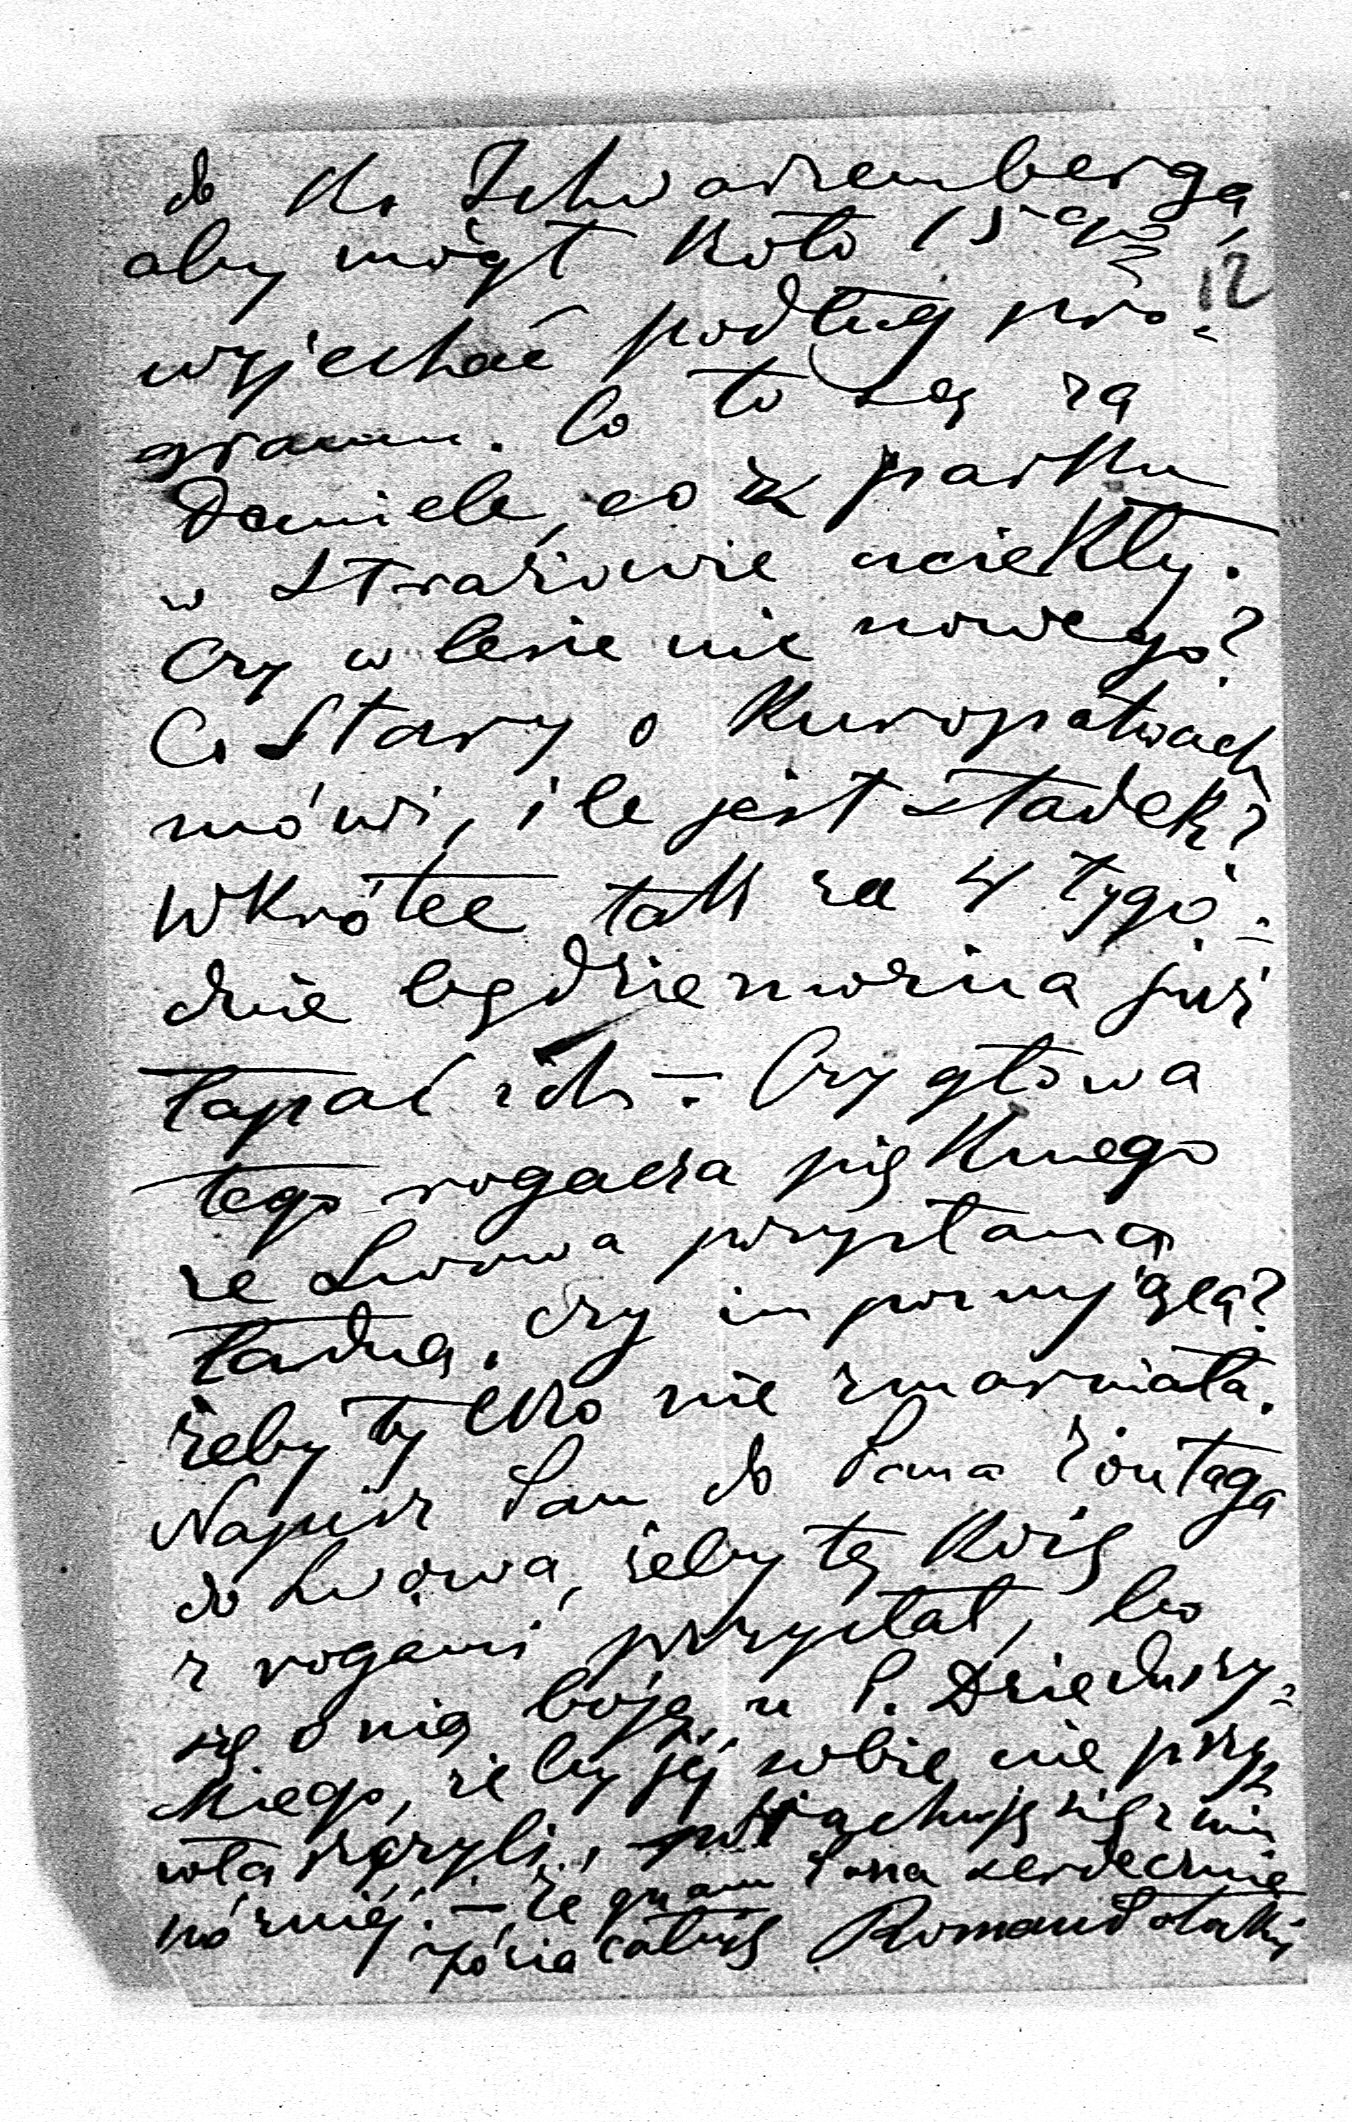 do Ks Schwarzemberga,
aby mógł koło 15 go
12
wyjechać podług pro-
gramu. Co to są za
Daniele, co z parku
w Strażowie uciekły.
Czy w lesie nic nowego?
Co Stary o Kuropatwach
mówi, ile jest stadek?
Wkrótce tak za 4 tygo-
dnie będzie można już
łapać ich. – Czy głowa
tego rogacza pięknego
ze Lwowa przysłana
ładna, czy im
żeby tylko nie zmarniała.
Napisz Pan do Pana Zontaga
do Lwowa, żeby tę
z rogami przysłał, bo
się o nią boję, u P. Dzieduszy-
ckiego, żeby jéj sobie nie przy-
właszczyli, porachuję się z nim
późniéj. – Żegnam Pana serdecznie
Zosia całuję Roman Potocki